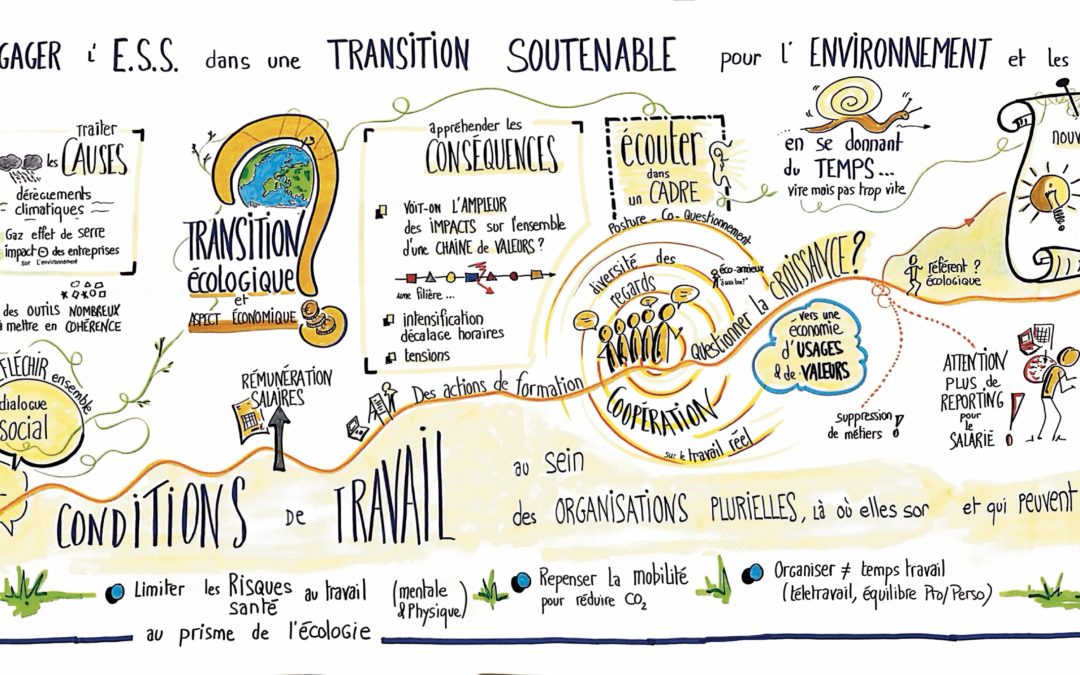 GAGER l'E.S.S. dans une TRANSITION SOUTENABLE pour l'ENVIRONNEMENT et les
traiter
les CAUSES
dérèglements
climatiques
Gaz effet de serre
impact ⊖ des entreprises
sur l'environnement
des OUTILS NOMBREUX
à mettre en COHÉRENCE
RÉFLÉCHIR ensemble
dialogue
social
TRANSITION
écologique
et
ASPECT ÉCONOMIQUE
RÉMUNÉRATION
SALAIRES
appréhender les
CONSÉQUENCES
VOIT-ON L'AMPLEUR
des IMPACTS sur l'ensemble
d'une CHAÎNE de VALEURS ?
une filière ...
intensification
décalage horaires
tensions
Des actions de formation
écouter
dans
un CADRE
Posture - Co - Questionnement
diversité des
regards
éco-anxieux
COOPÉRATION
sur le travail réel
Questionner la CROISSANCE ?
en se donnant
du TEMPS...
vite mais pas trop vite
vers une
économie
d'USAGES
& de VALEURS
référent ?
écologique
nouv
suppression
de métiers !
ATTENTION
PLUS de
REPORTING
pour
le
SALARIÉ !
CONDITIONS DE TRAVAIL
au sein
des ORGANISATIONS PLURIELLES, là où elles sor et qui peuvent
Limiter les Risques au travail (mentale
santé & Physique)
au prisme de l'écologie
Repenser la mobilité
pour réduire CO2
Organiser ≠ temps travail
(télétravail, équilibre Pro/Perso)